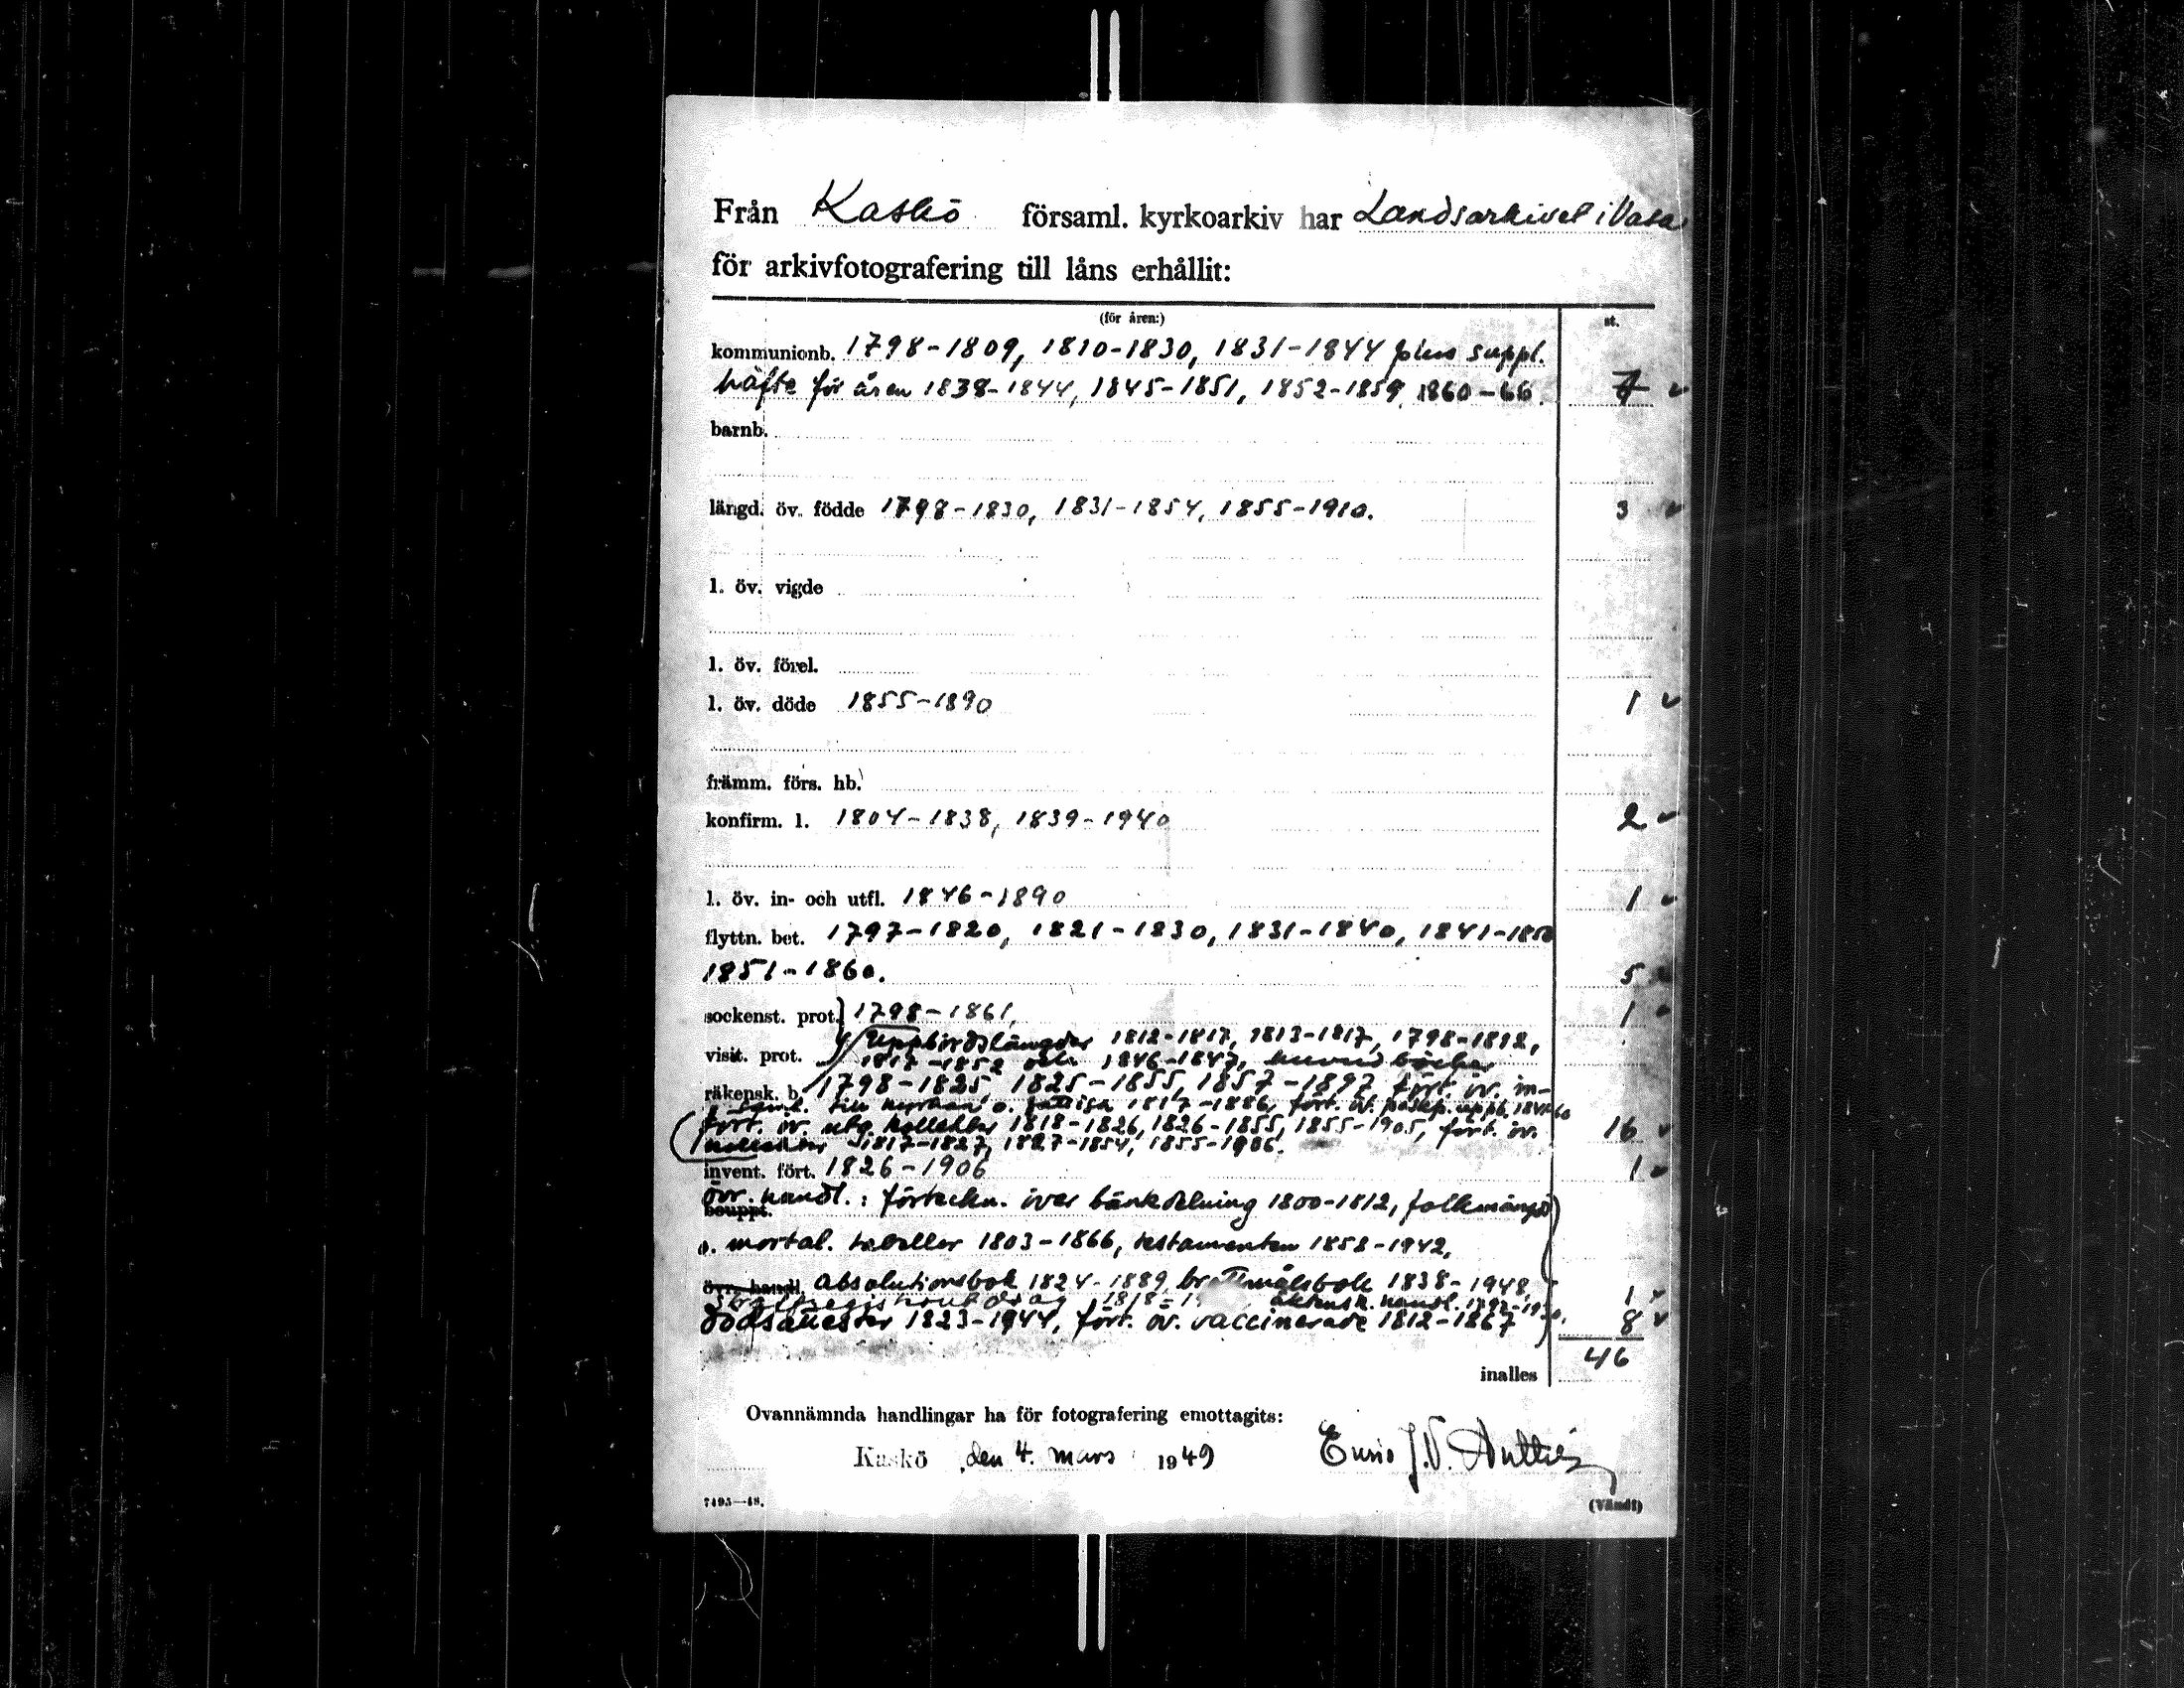 Från Kaskö församl. kyrkoarkiv har Landsarkivet i Vasa
för arkivfotografering till låns erhållit:
(för åren:) st.
kommunionb. 1798-1809, 1810-1830, 1831-1844 plus suppl.
häfte för åren 1838-1844, 1845-1851, 1852-1859, 1860-66. 7
barnb.
längd. öv. födde 1798-1830, 1831-1854, 1855-1910. 3
l. öv. vigde
l. öv. förel.
l. öv. döde 1855-1890 1
främm. förs. hb.
konfirm. l. 1804-1838, 1839-1940 2
l. öv. in- och utfl. 1846-1890 1
flyttn. bet. 1797-1820, 1821-1830, 1831-1840, 1841-1850
1851-1860. 5
sockenst. prot. 1798-1861, 1
Uppbördslängder 1812-1817, 1813-1817, 1798-1812,
visit. prot. 1817-1852 och 1846-1847,
räkensk. b. 1798-1825 1825-1855, 1857-1897 fört. öv. in-
till kyrkan o. fattiga 1817-1886, fört. öv.
fört. öv. utg. kollekter 1818-1826, 1826-1855, 1855-1905, fört. öv. 16
kollekter 1817-1827, 1827-1854, 1855-1906.
invent. fört. 1826-1906 1
övr. handl.: förteckn. över bänkdelning 1800-1812, folkmängd
bouppt.
o. mortal. tabeller 1803-1866, testamenten 1858-1942,
övr. handl. absolutionsbok 1824-1889, brottmålsbok 1838-1948, 1
handl.
dödsattester 1823-1944, fört. öv. vaccinerade 1812-1867 8
46
inalles
Ovannämnda handlingar ha för fotografering emottagits:
Kaskö den 4. mars 1949
7495—48. (Vänd!)